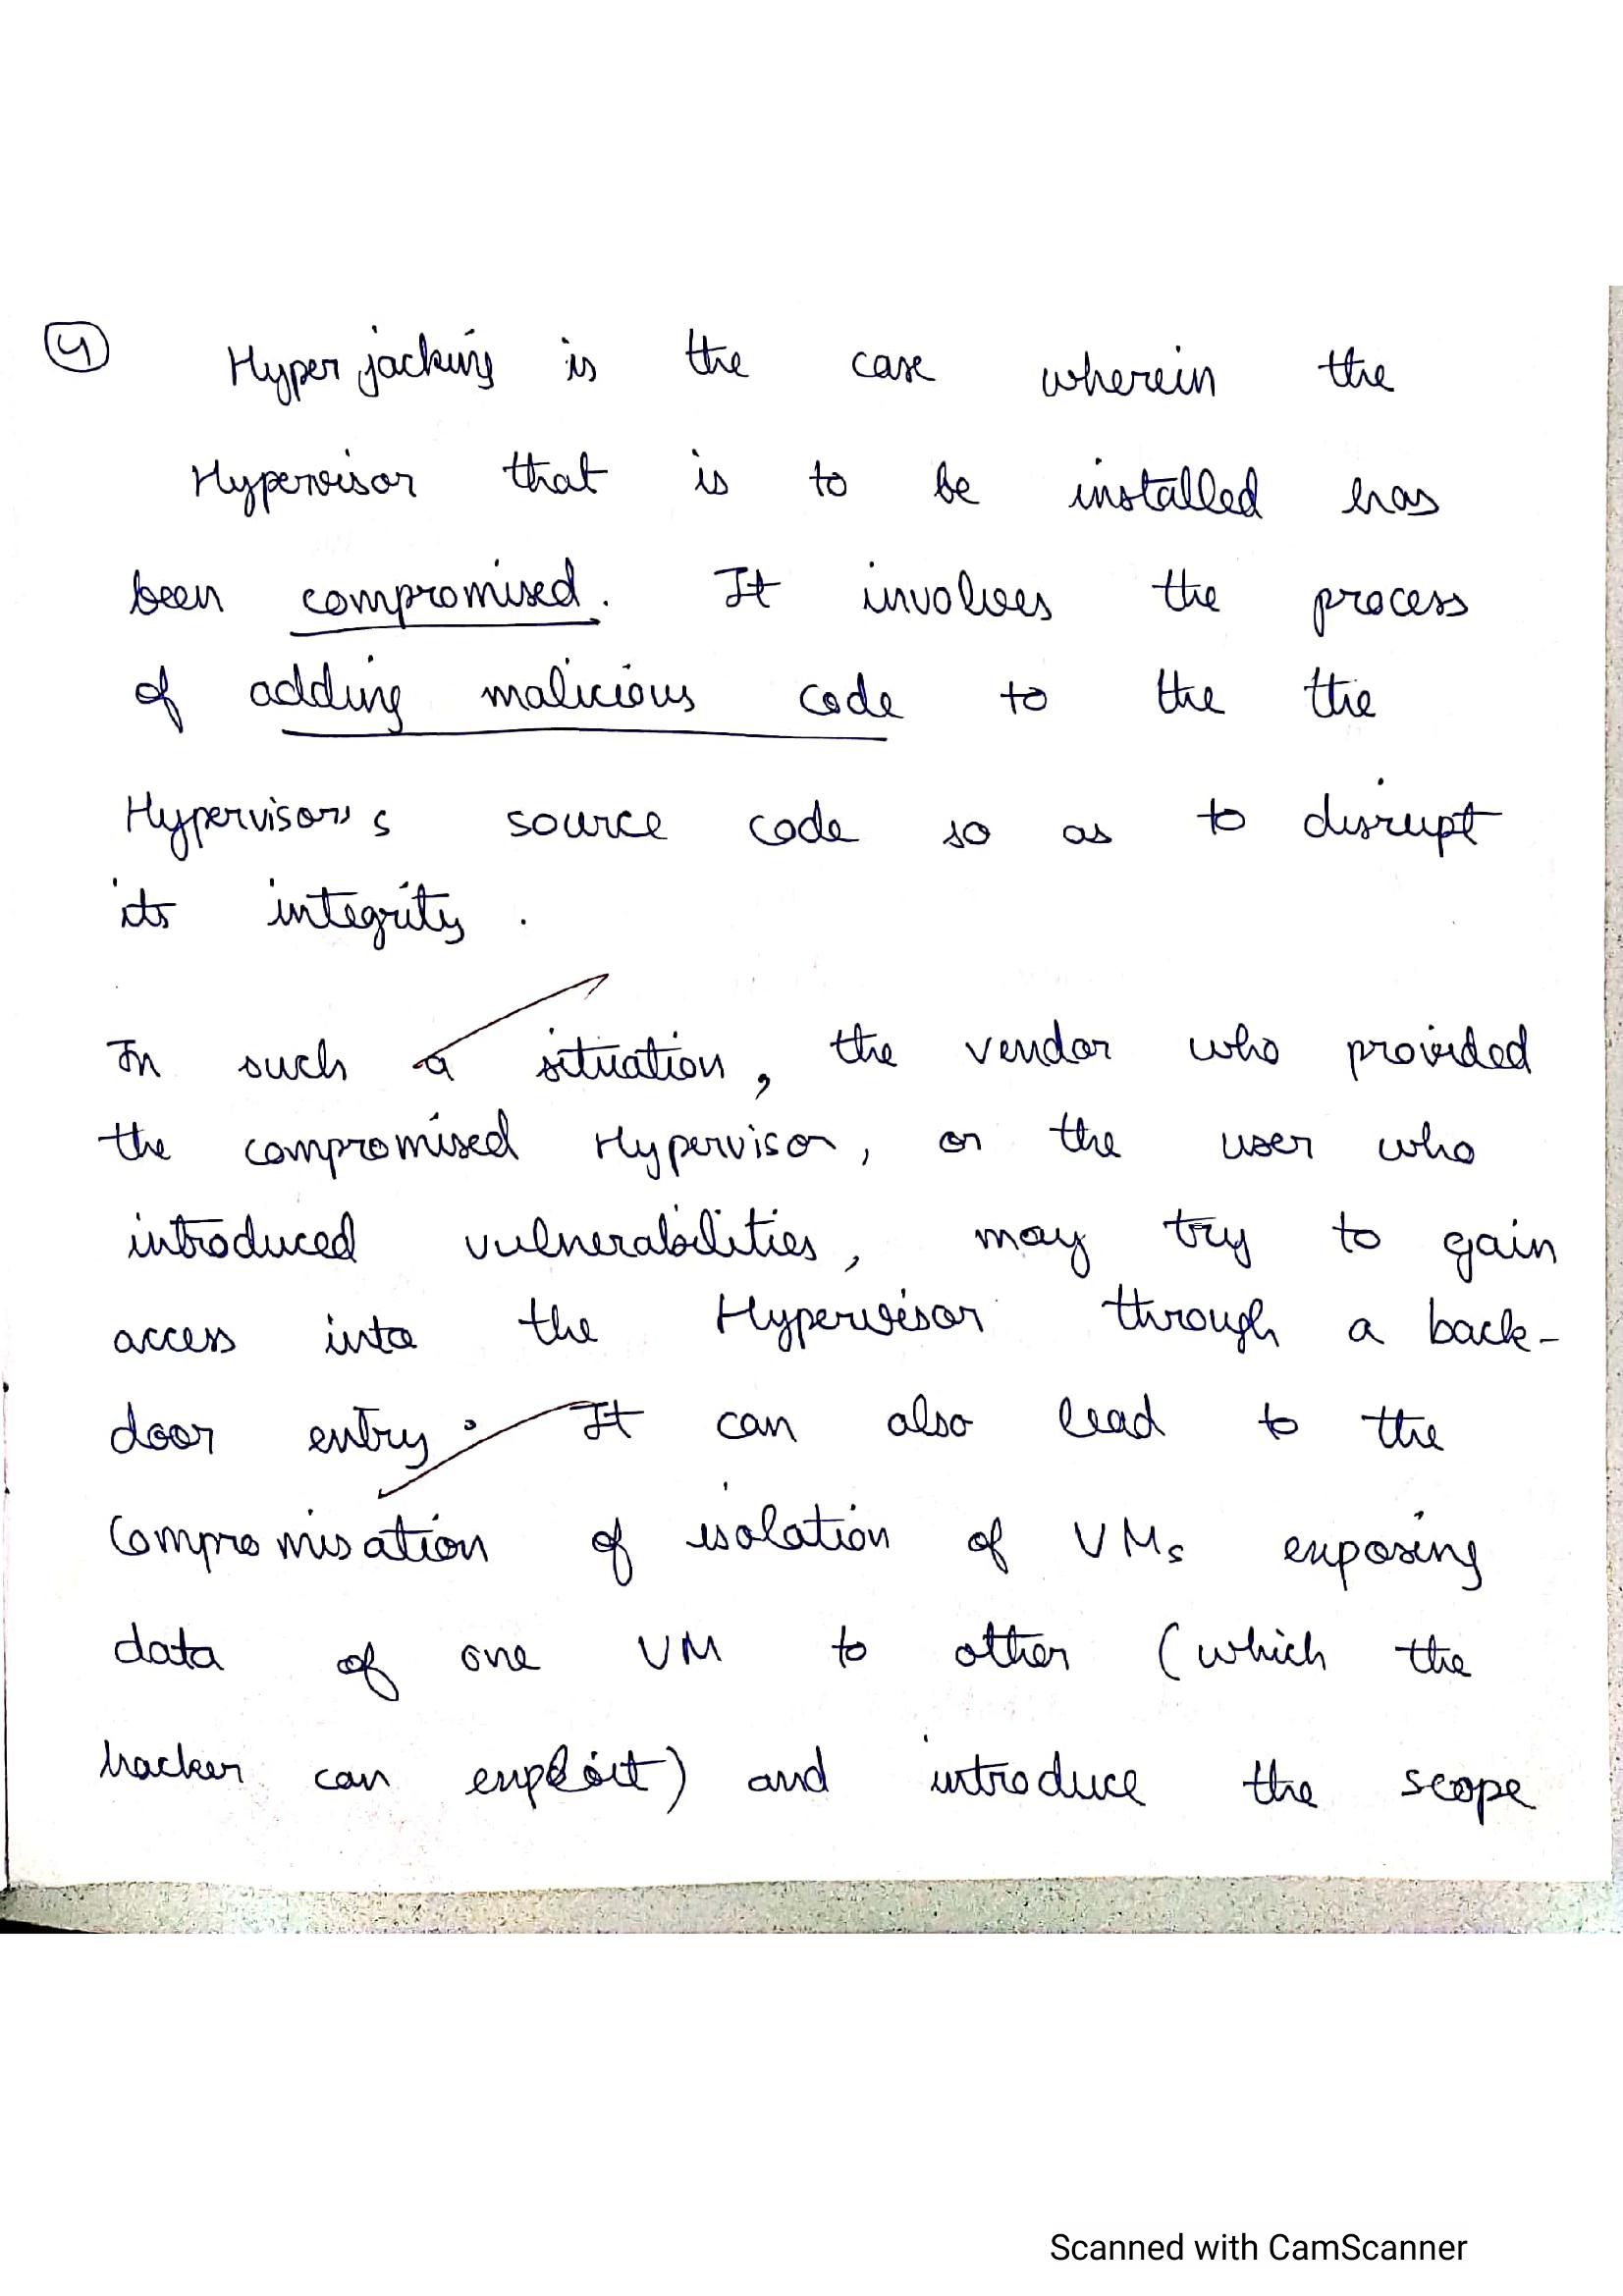 4 Hyperjacking is the case wherein the
Hypervisor that is to be installed has
been compromised. It involves the process
of adding malicious code to the the
Hypervisor's source code so as to disrupt
its integrity.
In such a situation, the vendor who provided
the compromised Hypervisor, or the user who
introduced vulnerabilities, may try to gain
access into the Hypervisor through a back-
door entry. It can also lead to the
compromisation of isolation of VMs exposing
data of one VM to other (which the
hacker can exploit) and introduce the scope
Scanned with CamScanner